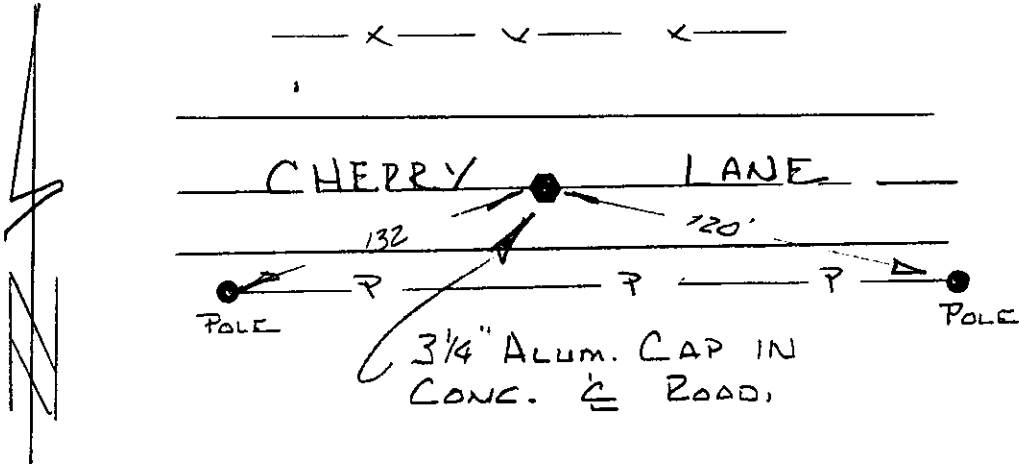 X X X
CHERRY LANE
132 120'
P P P
POLE POLE
3 1/4" ALUM. CAP IN
CONC. ℄ ROAD.
N